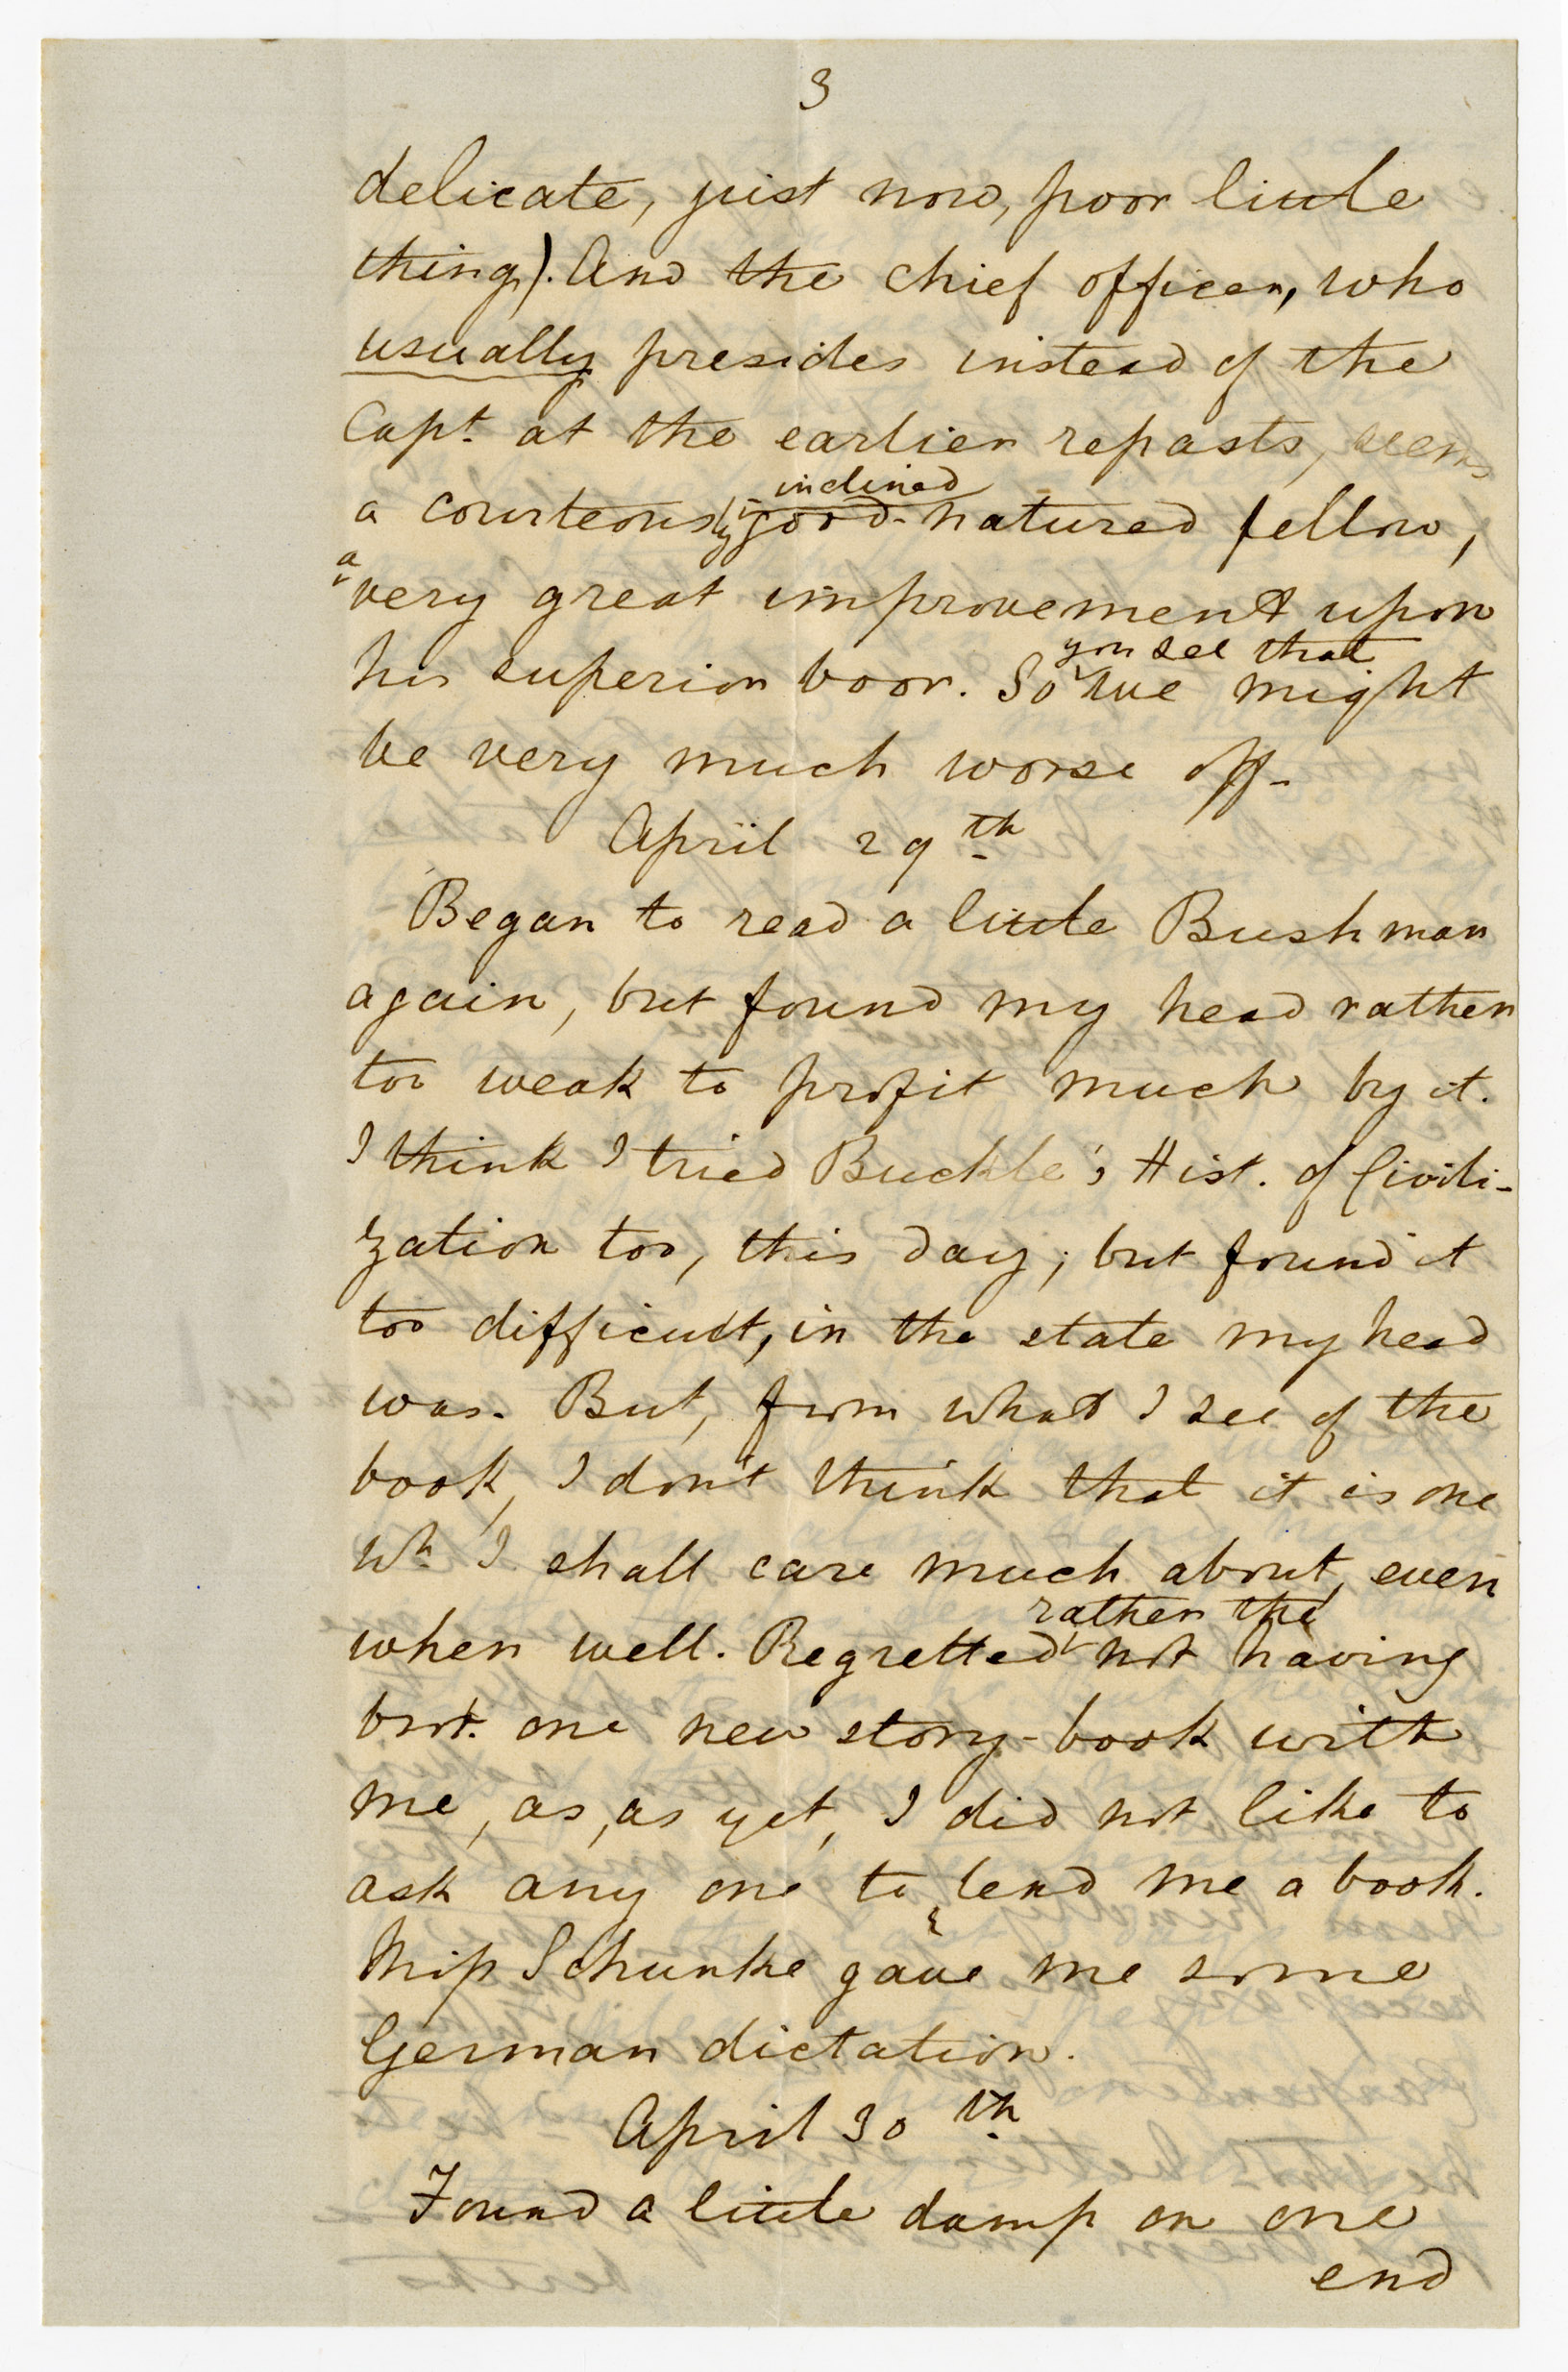 3
delicate, just now, poor little
thing). And the chief officer, who
usually presides instead of the
Capt. at the earlier repasts, seems
inclined
a courteously good-natured fellow,
a
very great improvement upon
you see that
his superior boor. So we might
be very much worse off.
April 29th
Began to read a little Bushman
again, but found my head rather
too weak to profit much by it.
I think I tried Buckle's Hist. of Civili-
zation too, this day; but found it
too difficult, in the state my head
was. But, from what I see of the
book, I don't think that it is one
wh I shall care much about, even
rather the
when well. Regretted not having
brot. one new story-book with
me, as, as yet, I did not like to
ask any one to lend me a book.
Miss Schunke gave me some
German dictation.
April 30th
Found a little damp on one
end